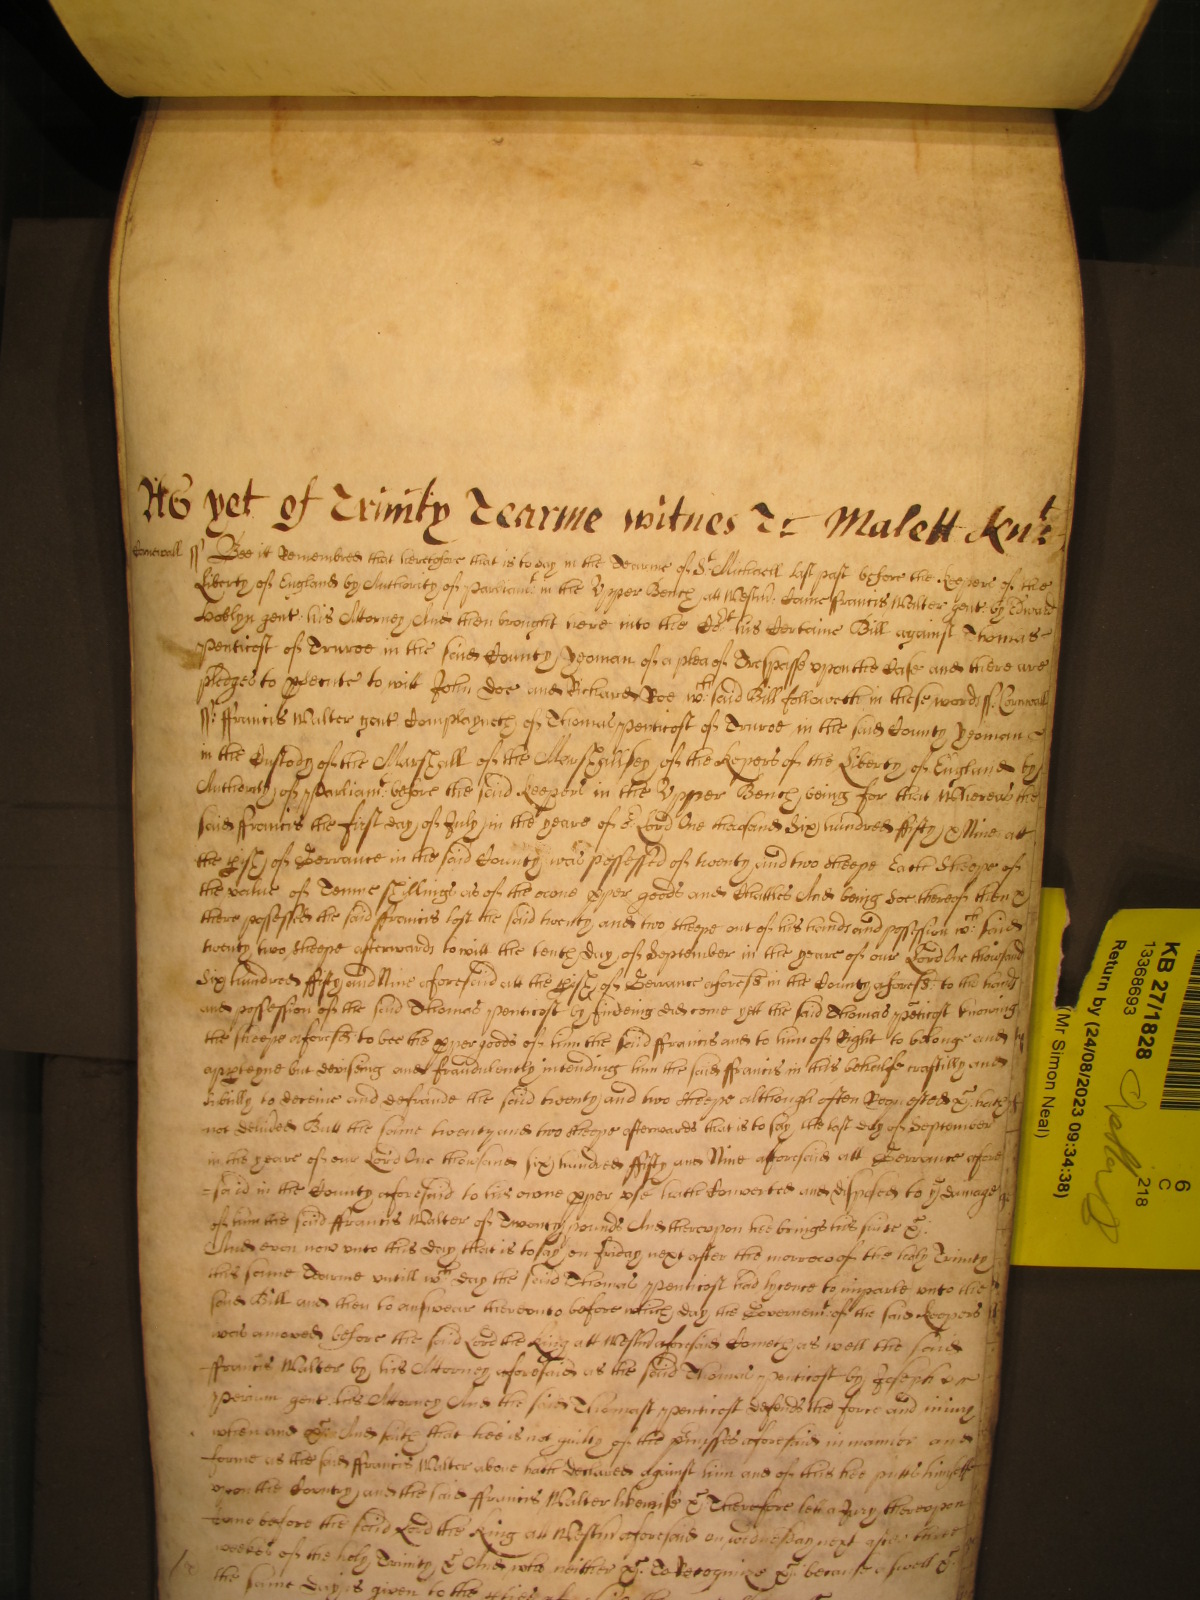 As yet of Trinity Tearme witnes Tc Malett Knt:
Cornewall ss Bee it Remembred that heretofore that is to say in the Tearme of St Michaell last past before the Keepers of the
Liberty of England by Authority of Parliamt: in the Upper Bench att Westmr: Came ffrancis Walter gent: by Edward
Hoblyn gent: his Attorney And then brought here into the Crt: his Certaine Bill against Thomas
Penticost of Truroe in the said County Yeoman of a plea of Trespasse upon the Case and there are
pledges to psecute to witt John Doe and Richard Roe wch: said Bill followeth in these words ss: Cornwall
ss: ffrancis Walter gent Complayneth of Thomas Penticost of Truroe in the said County Yeoman
in the Custody of the Marshall of the Marshallsey of the Kepers of the Liberty of England by
Authority of Parliamt: before the said Keepers in the Upper Bench being for that Whereas the
said ffrancis the first day of July in the yeare of or Lord One thousand Six hundred ffifty & Nine att
the pish of Gerrance in the said County was possessed of twenty and two sheepe Each Sheepe of
the value of Tenne shillings as of the owne pper goods and Chattles And being soe thereof then &
there possessed the said ffrancis lost the said twenty and two sheepe out of his hands and possession wch: said
twenty two sheepe afterwards to witt the tenth day of September in the yeare of our Lord One thowsand
Six hundred ffifty and Nine aforesaid att the pish of Gerrance aforesd: in the County aforesd: to the hands
and possession of the said Thomas Penticost by findeing did come yett the said Thomas Peticost knowing
the sheepe aforesd: to bee the pper goods of him the said ffrancis and to him of Right to belonge and
apperteyne but devising and fraudulently intending him the said ffrancis in this behalfe craftilly and
subtilly to deceive and defraude the said twenty and two sheepe although often Requested &c: hath
not delivered Butt the same twenty and two sheepe afterwards that is to say the last day of September
in the yeare of our Lord One thowsand six hundred ffifty and Nine aforesaid att Gerrance afore
=said in the County aforesaid to his owne pper use hath Converted and disposed to ye damage
of him the said ffrancis Walter of Twenty pounds And thereupon hee brings his suite &c:
And even now unto this day that is to say on Friday next after the morrow of the holy Trinity
this same Tearme untill wch day the said Thomas Penticost had lycence to imparle unto the
said Bill and then to answear thereunto before which day the Governemt: of the said Keepers
was amoved before the said Lord the King att Westmr aforesaid Cometh as well the said
ffrancis Walter by his Attorney aforesaid as the said Thomas Penticost by Joseph
gent: his Attorney And the said Thomas Penticost defends the force and iniury
when and &c: And saith that hee is not guilty of the pmisses aforesaid in manner and
forme as the said ffrancis Walter above hath declared against him and of this hee putts himselfe
upon the Country and the said ffrancis Walter likewise &c: Therefore lett a Jury thereupon
Come before the said Lord the King att Westmr aforesaid on wednesday next after three
weekes of the holy Trinity &c And who neither &c: To Recognize &c: because aswell &c:
the same day is given to the
KB 27/1828
13368693
Return by (24/08/2023 09:34:38)
(Mr Simon Neal)
6
C
218